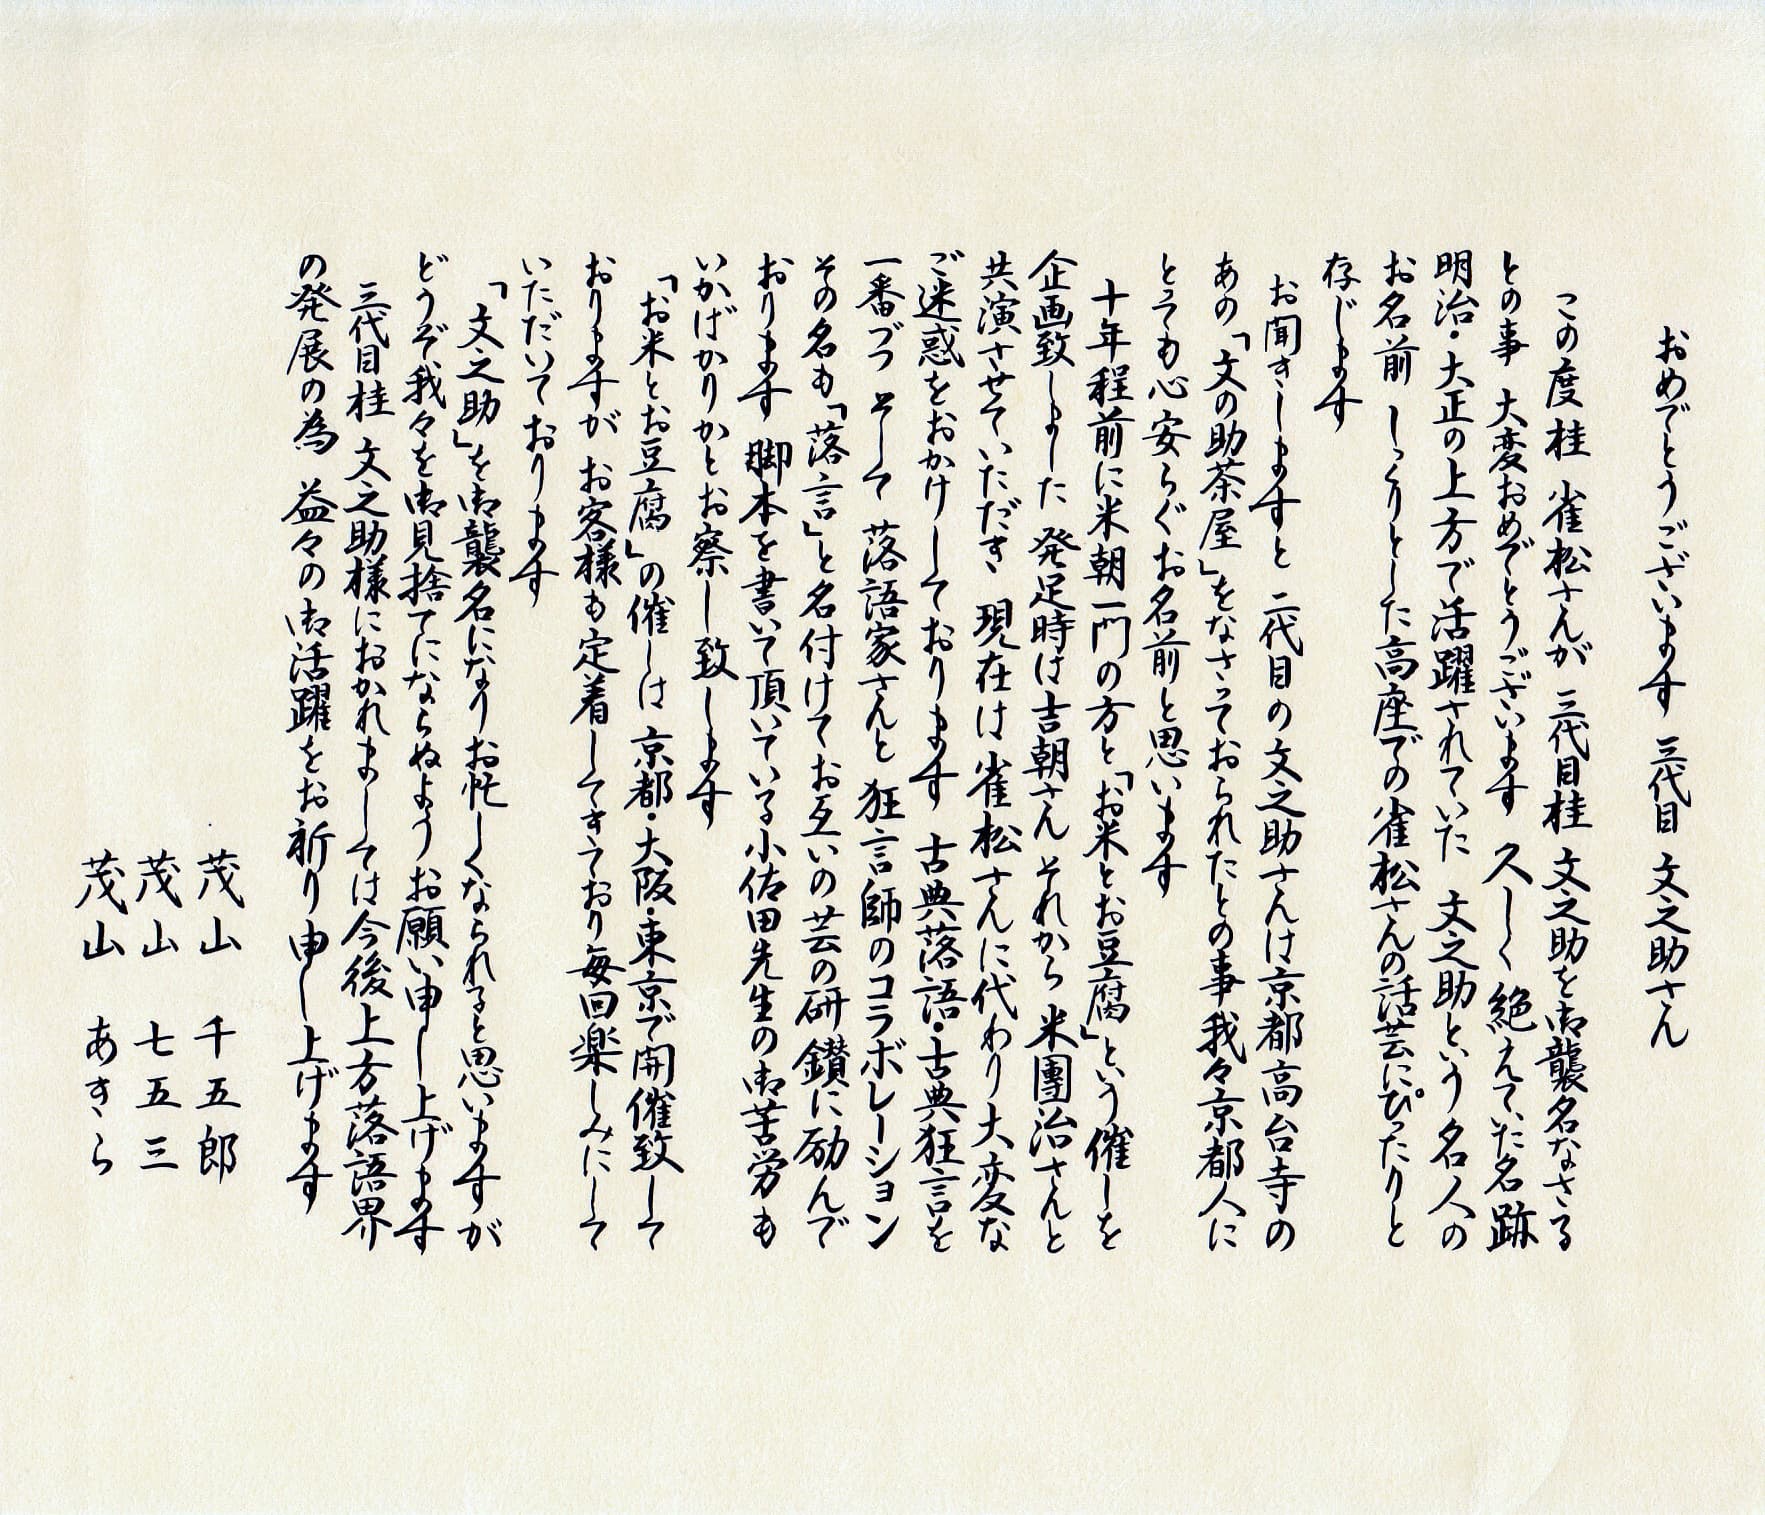 おめでとうございます 三代目 文之助さん
この度桂 雀松さんが 三代目桂 文之助を御襲名なさる
との事 大変おめでとうございます 久しく絶えていた名跡
明治・大正の上方で活躍されていた 文之助という名人の
お名前 しっくりとした高座での雀松さんの話芸にぴったりと
存じます
お聞きしますと 二代目の文之助さんは京都高台寺の
あの「文の助茶屋」をなさっておられたとの事 我々京都人に
とっても心安らぐお名前と思います
十年程前に米朝一門の方と「お米とお豆腐」という催しを
企画致しました 発足時は吉朝さん それから 米團治さんと
共演させていただき 現在は雀松さんに代わり大変な
ご迷惑をおかけしております 古典落語・古典狂言を
一番づつ そして 落語家さんと 狂言師のコラボレーション
その名も「落言」と名付けてお互いの芸の研鑚に励んで
おります 脚本を書いて頂いている小佐田先生の御苦労も
いかばかりかとお察し致します
「お米とお豆腐」の催しは 京都・大阪・東京で開催致して
おりますが お客様も定着してきており毎回楽しみにして
いただいております
「文之助」を御襲名になりお忙しくなられると思いますが
どうぞ我々を御見捨てにならぬよう お願い申し上げます
三代目桂 文之助様におかれましては今後上方落語界
の発展の為 益々の御活躍をお祈り申し上げます
茂山 千五郎
茂山 七五三
茂山 あきら